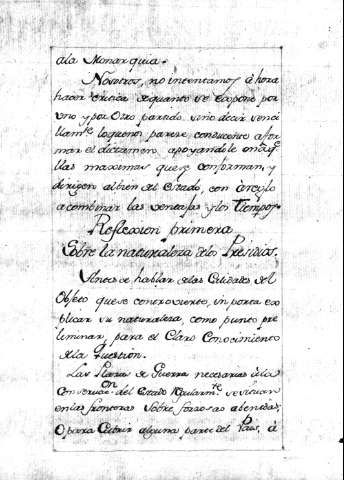 ala Monarquia.
Nosotros, no intentamos áhora
hacer critica dequanto se expone por
uno y por Otro partido, sino decir senci
llamte loquenos parece conducente afor
mar el dictamen, apoyandole en
llas maximas que se conforman, y
dirigen albien del Estado, con areglo
acombinar las ventajas ylos tiempos.
Reflexion primera
Sobre la naturaleza delos Presidios.
Antes de hablar delas Calidades del
Objeto quese controvierte, inporta ex
plicar su naturaleza, como punto pre
liminar, para el Claro Conocimiento
dela question.
Las Plazas de Guerra necesarias ála
Conservaon del Estado regularmte se situan
enlas fronteras Sobre forzosas abenidas,
O para Cubrir alguna parte del Pais, á